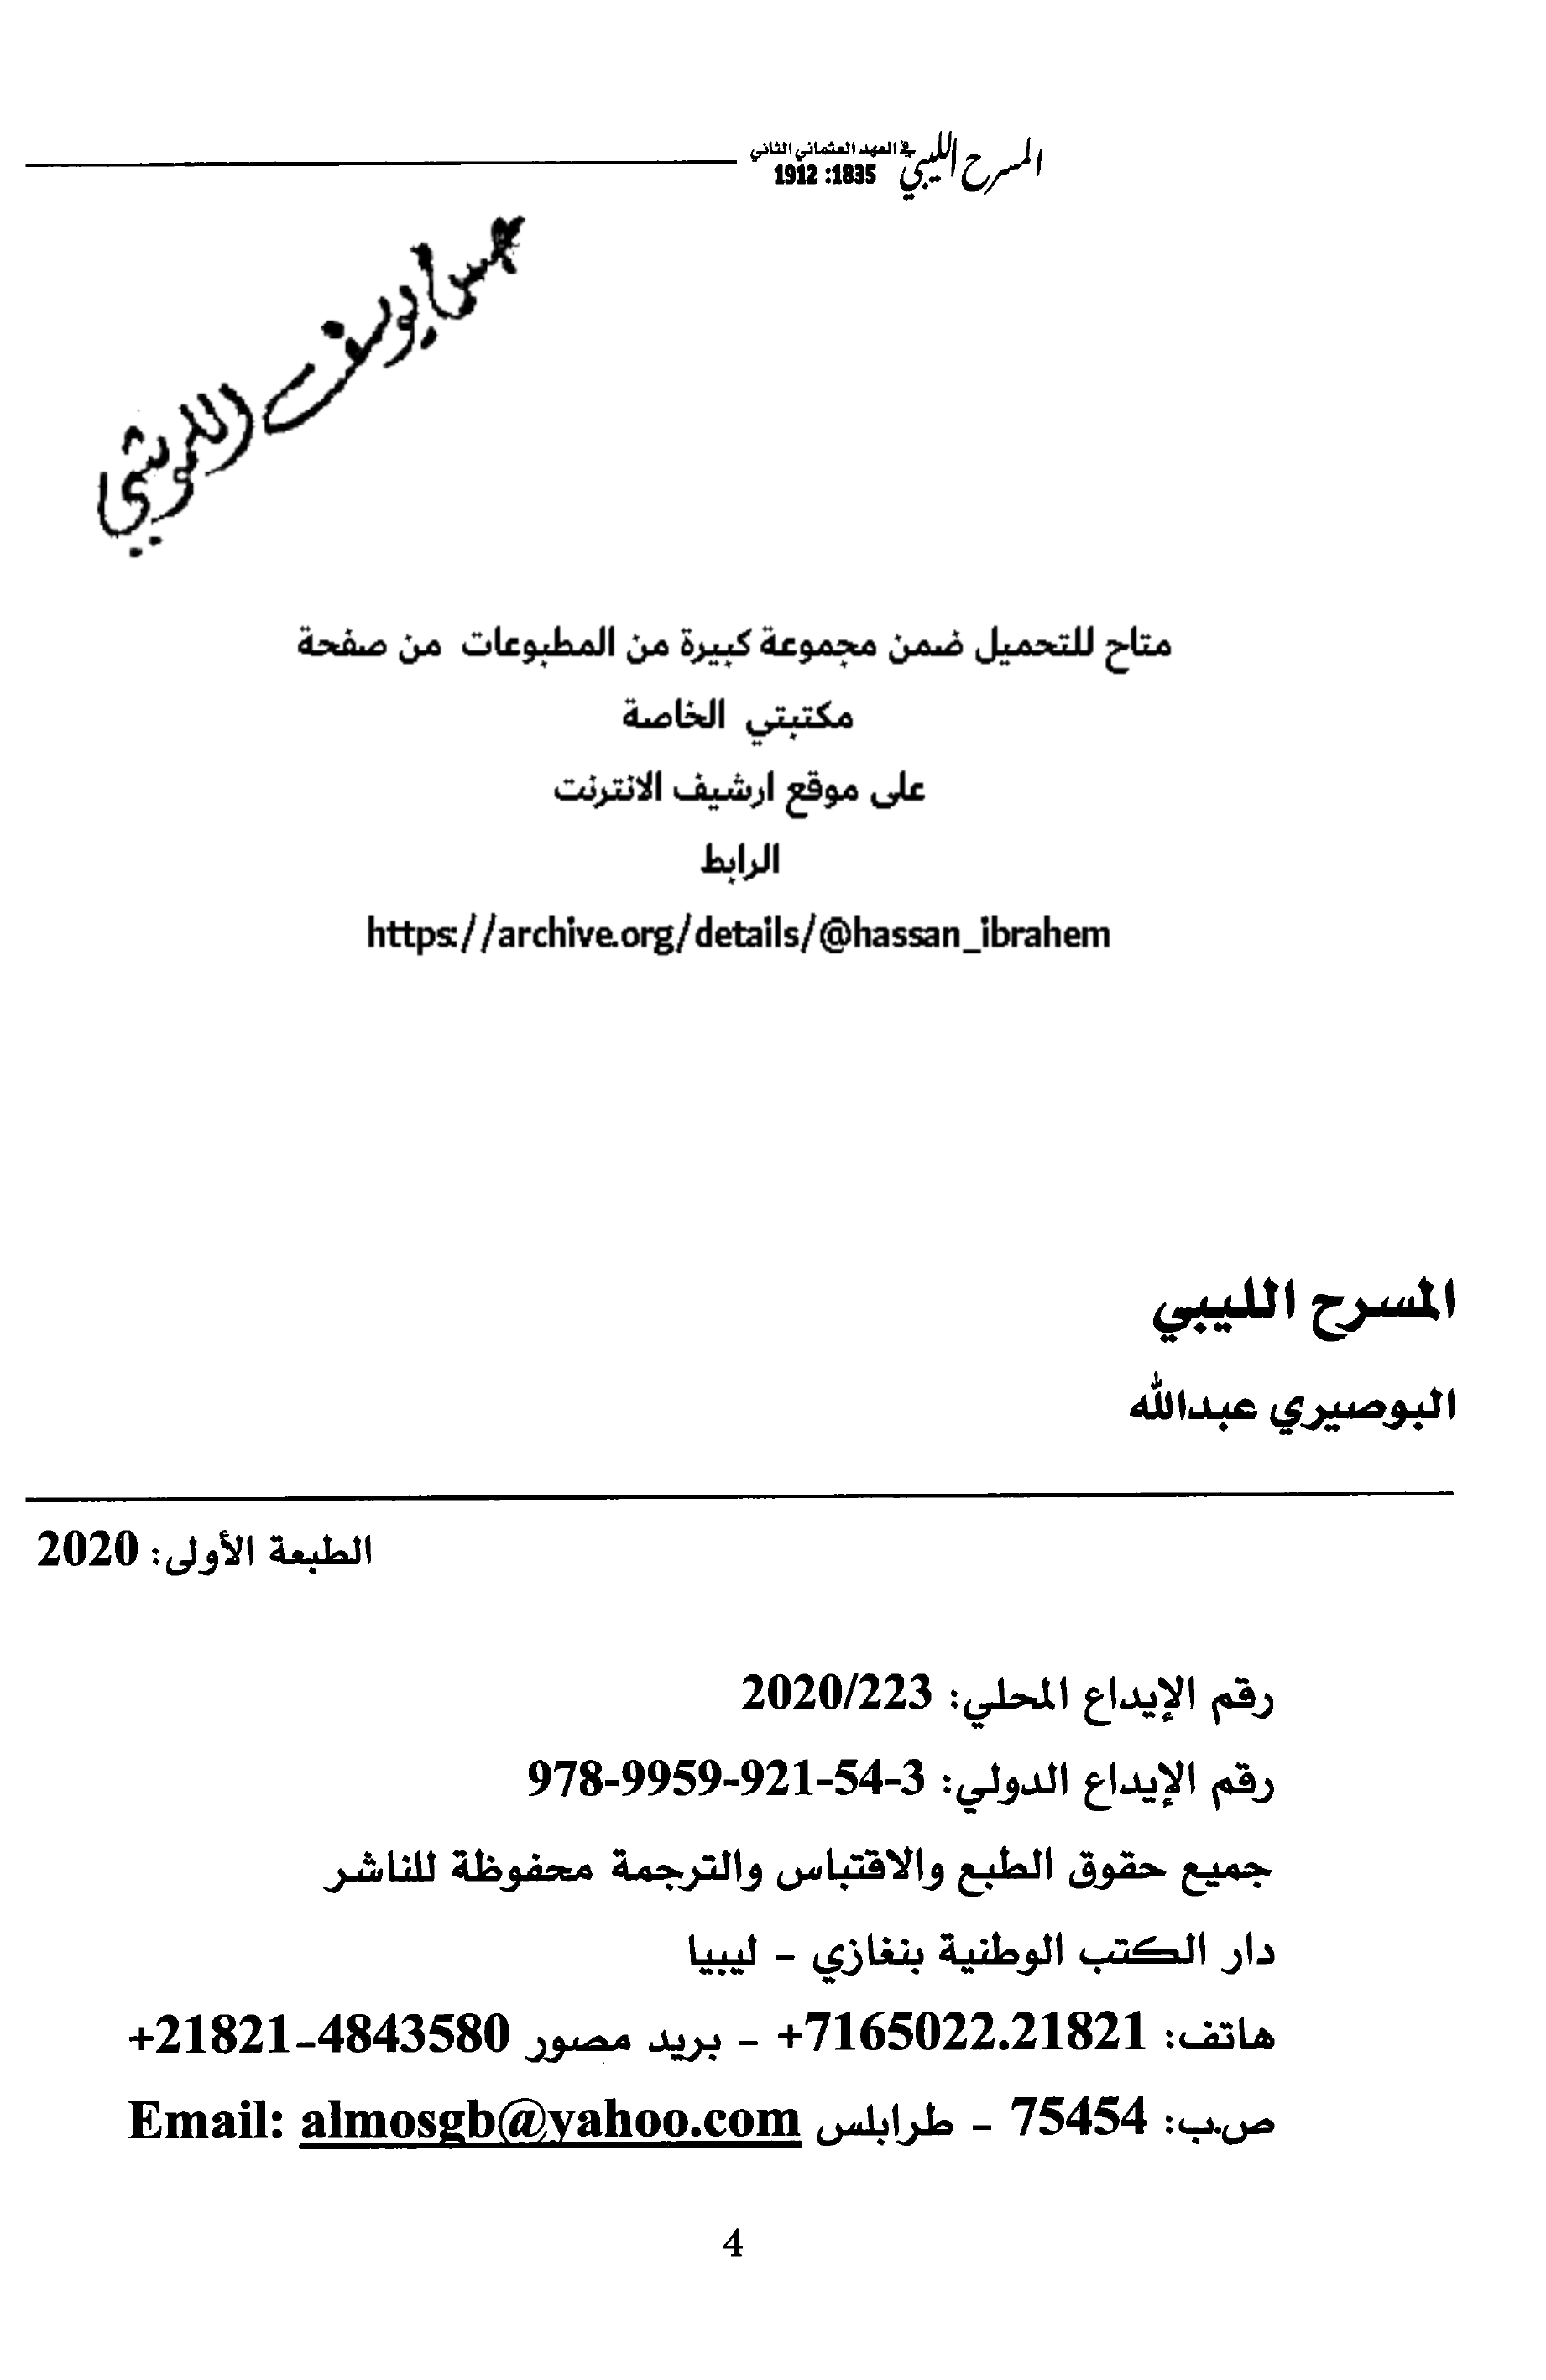 المسرح الليبي في العهد العثماني الثاني
1835: 1912
متاح للتحميل ضمن مجموعة كبيرة من المطبوعات من صفحة
مكتبتي الخاصة
على موقع ارشيف الانترنت
الرابط
https://archive.org/details/@hassan_ibrahem
المسرح الليبي
البوصيري عبدالله
الطبعة الأولى: 2020
رقم الإيداع المحلي: 2020/223
رقم الإيداع الدولي: 978-9959-921-54-3
جميع حقوق الطبع والاقتباس والترجمة محفوظة للناشر
دار الكتب الوطنية بنغازي - ليبيا
هاتف: 7165022.21821+ - بريد مصور 21821-4843580+
ص.ب: 75454 - طرابلس Email: almosgb@yahoo.com
4